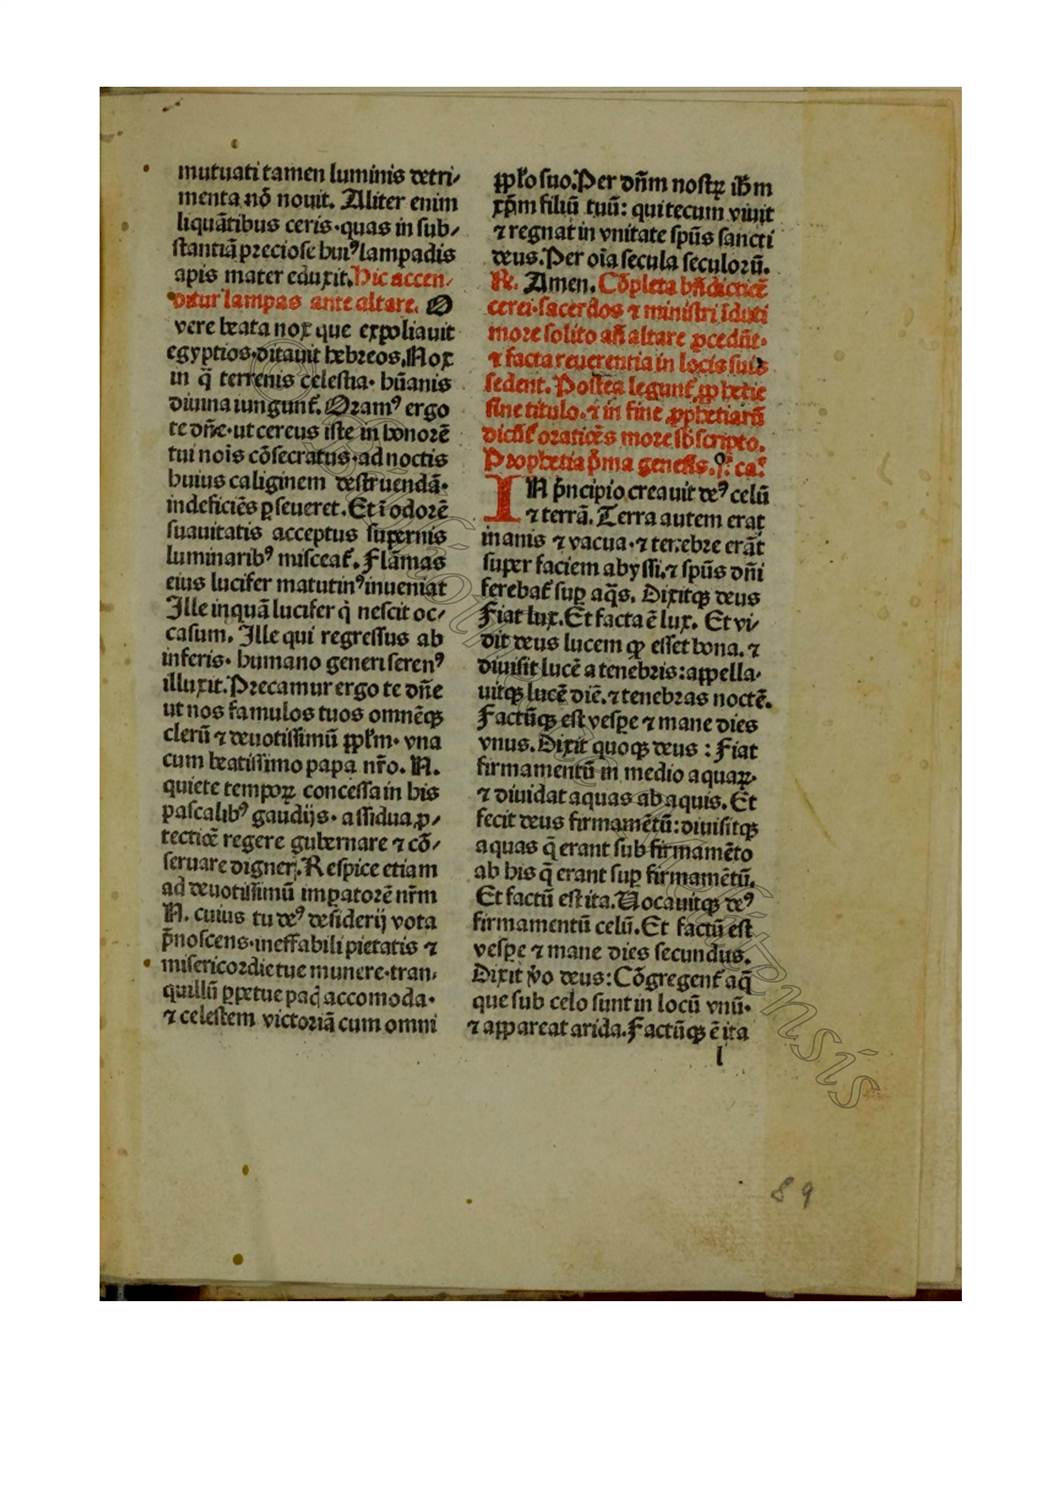 mutuati tamen luminis detri⸗
menta nō nouit. Aliter enim
liquātibus ceris·quas in sub⸗
stantiā preciose huiꝰ lampadis
apis mater eduxit. Hic accen⸗
ditur lampas ante altare. O
vere beata nox que expoliauit
egyptios·ditauit hebreos. Nox
in q̄ terrenis celestia· hūanis
diuina iungunt᷑. Oramꝰ ergo
te dn̄e·ut cereus iste in honorē
tui nois cōsecratus·ad noctis
huius caliginem destruendā·
indeficiēs ꝑseueret. Et ī odorē
suauitatis acceptus supernis
luminaribꝰ misceat᷑. Flāmas
eius lucifer matutinꝰ inueniat
Ille inquā lucifer q̇ nescit oc⸗
casum. Ille qui regressus ab
inferis· humano generi serenꝰ
illuxit. Precamur ergo te dn̄e
ut nos famulos tuos omnēqꝫ
clerū ⁊ deuotissimū ppl̄m· vna
cum beatissimo papa nr̄o. N.
quiete tempoꝝ concessa in his
pascalibꝰ gaudijs· assidua ꝓ⸗
tectiōe regere gubernare ⁊ cō⸗
seruare digneꝭ. Respice etiam
ad deuotissimū imꝑatorē nr̄m
N. cuius tu deꝰ desiderij vota
p̄noscens·ineffabili pietatis ⁊
misericordie tue munere·tran⸗
quillū ꝑpetue pacꝭ accomoda·
⁊ celestem victoriā cum omni
ppl̄o suo. Per dn̄m nostꝝ ih̄m
xp̄m filiū tuū: qui tecum viuit
⁊ regnat in vnitate spūs sancti
deus. Per oīa secula seculorū.
℟. Amen. Cōpleta bn̄dictiōe
cerei·sacerdos ⁊ ministri īduti
more solito an̄ altare ꝓcedūt·
⁊ facta reuerentia in locis suis
sedent. Postea legunt᷑ ꝓphetie
sine titulo·⁊ in fine ꝓphetiarū
dicūt᷑ oratiōes more sb̄scripto.
Prophetia p̄ma genesis. jͦ. caͦ.
IN p̄ncipio creauit deꝰ celū
⁊ terrā. Terra autem erat
inanis ⁊ vacua·⁊ tenebre erāt
super faciem abyssi.⁊ spūs dn̄i
ferebat᷑ suꝑ aq̄s. Dixitqꝫ deus
Fiat lux. Et facta ē lux. Et vi⸗
dit deus lucem ꝙ esset bona. ⁊
diuisit lucē a tenebris:appella⸗
uitqꝫ lucē diē.⁊ tenebras noctē.
Factūqꝫ est vesꝑe ⁊ mane dies
vnus. Dixit quoqꝫ deus : Fiat
firmamentū in medio aquaꝝ·
⁊ diuidat aquas ab aquis. Et
fecit deus firmamētū:diuisitqꝫ
aquas q̄ erant sub firmamēto
ab his q̄ erant suꝑ firmamētū.
Et factū est ita. Vocauitqꝫ deꝰ
firmamentū celū. Et factū est
vesꝑe ⁊ mane dies secundus.
Dixit v̊o deus: Cōgregent᷑ aq̄
que sub celo sunt in locū vnū·
⁊ appareat arida. Factūqꝫ ē ita
l
89